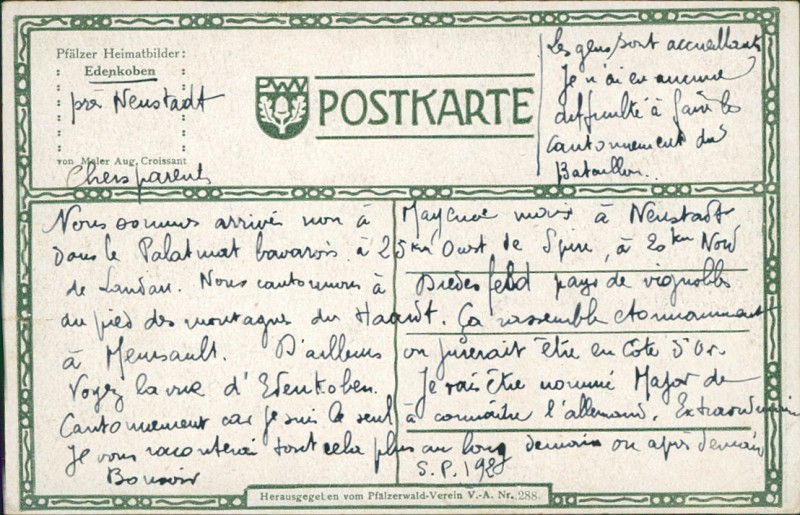 Pfälzer Heimatbilder:
Edenkoben
près Neustadt
von Maler Aug. Croissant
POSTKARTE
Chers parents
Nous sommes arrivés non à Mayence mais à Neustadt
dans le Palatinat bavarois à 25 km Ouest de Spire, à 20 km Nord
de Landau. Nous cantonnons à Diedesfeld pays de vignobles
au pied des montagnes du Haardt. Ça ressemble étonnamment
à Meursault. D'ailleurs on jurerait être en Côte d'Or.
Voyez la vue d'Edenkoben. Je vais être nommé Major de
Cantonnement car je suis le seul à connaître l'allemand. Extraordinaire
Je vous raconterai tout cela plus au long demain ou après demain
Bonsoir
S.P. 198
Les gens sont accueillants
Je n'ai eu aucune
difficulté à faire le
cantonnement du
Bataillon.
Herausgegeben vom Pfälzerwald-Verein V.-A. Nr. 288.